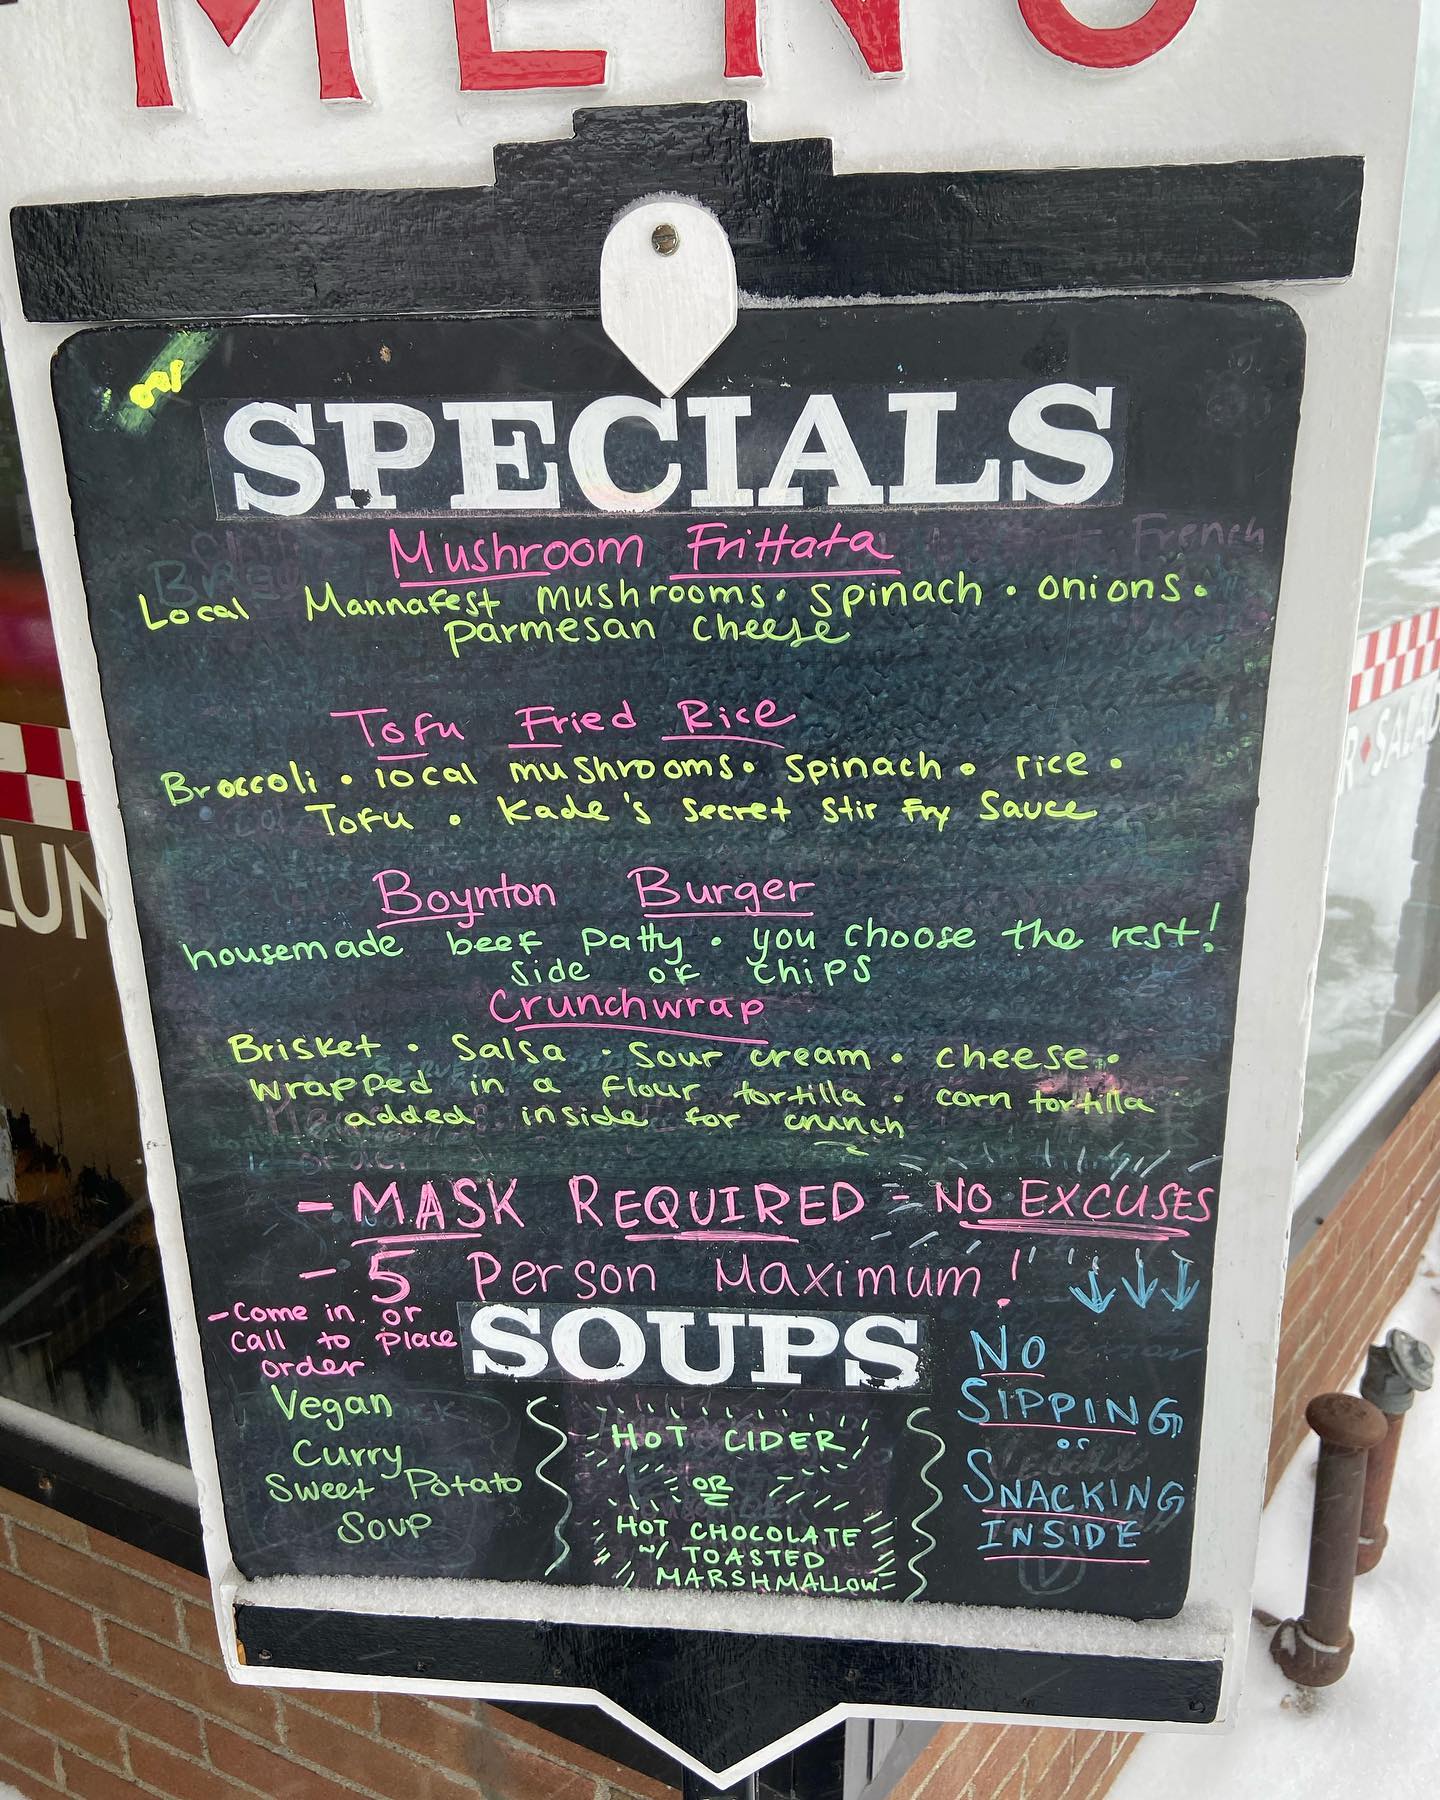 MENU
SPECIALS
Mushroom Frittata
French
Local Mannafest mushrooms • spinach • onions •
parmesan cheese
Tofu Fried Rice
Broccoli • local mushrooms • spinach • rice •
Tofu • Kade's Secret Stir Fry Sauce
Boynton Burger
housemade beef patty • you choose the rest!
side of chips
Crunchwrap
Brisket • Salsa • Sour cream • cheese •
wrapped in a flour tortilla • corn tortilla
added inside for crunch
- MASK REQUIRED - NO EXCUSES
- 5 Person Maximum!
- Come in or
Call to place
order
SOUPS
Vegan
Curry
Sweet Potato
Soup
HOT CIDER
OR
HOT CHOCOLATE
W/ TOASTED
MARSHMALLOW
NO
SIPPING
or
SNACKING
INSIDE
LUN
R • SALAD